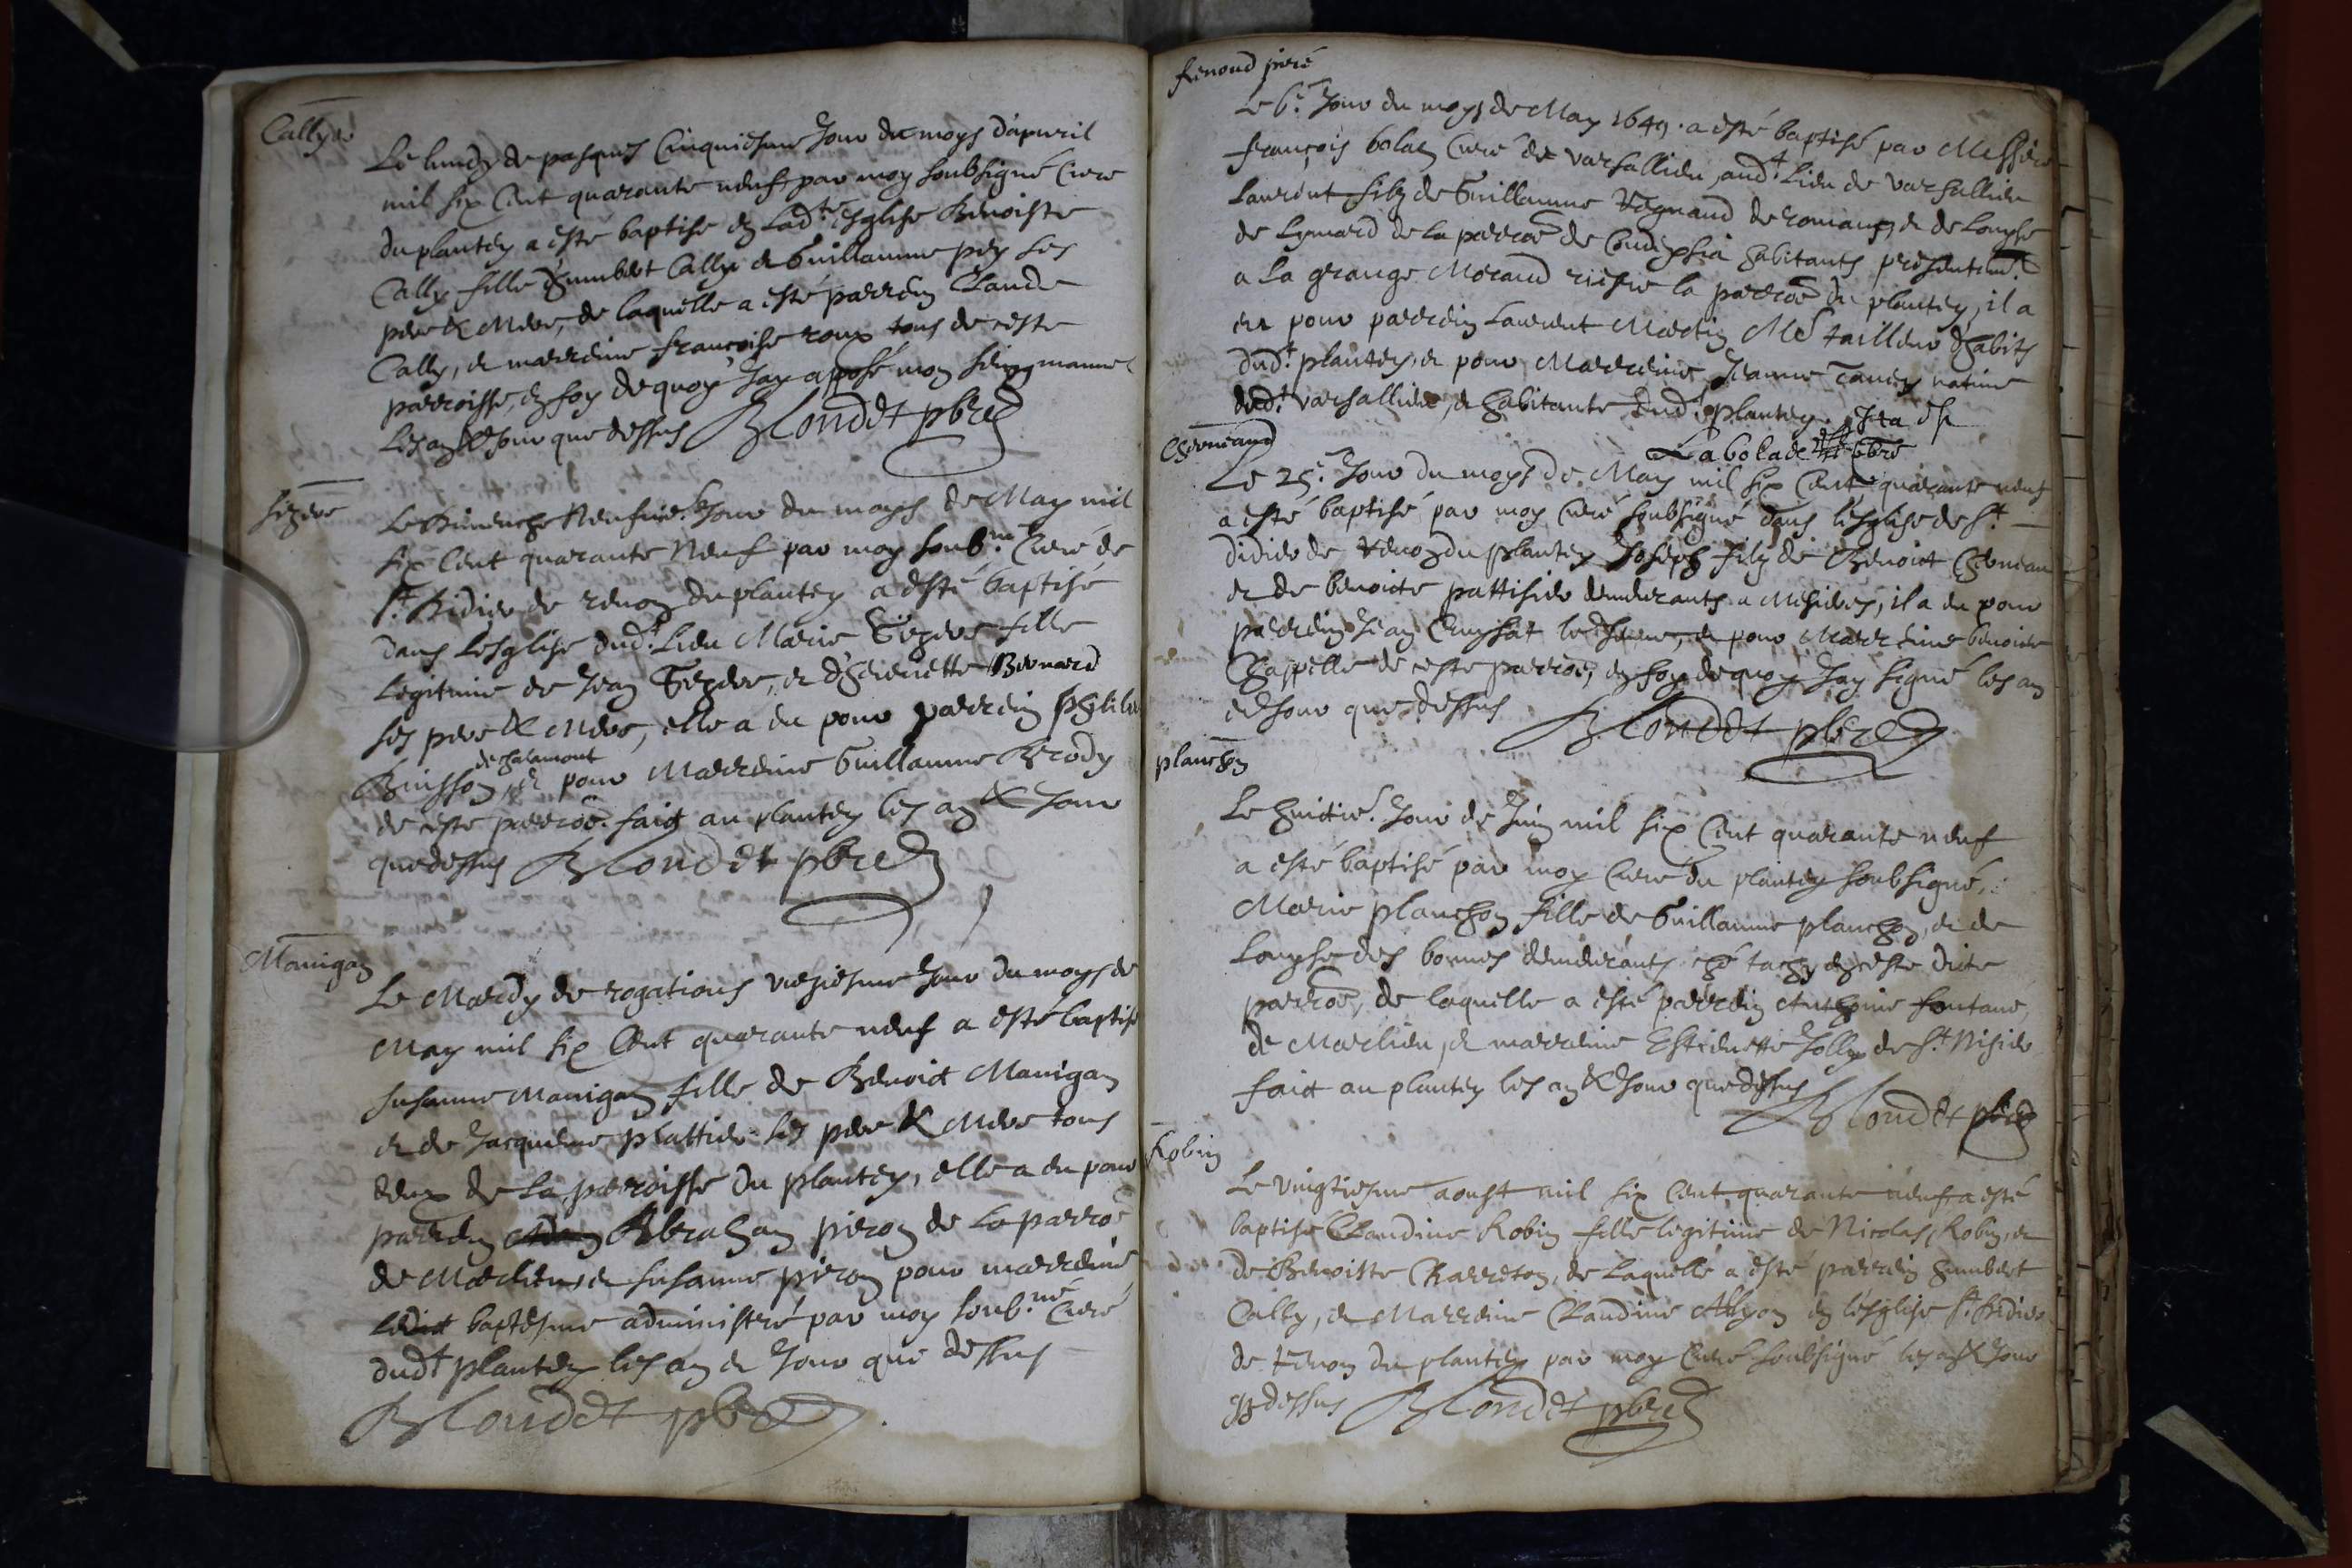 Cally
Le lundy de pasques cinquiesme Jour du moys d'apvril
mil six Cent quarante neuf, par moy soubsigné Curé
du plantey a esté baptisé en lad.te esglise Benoiste
Cally fille d'humbert Cally et Guillaume pey ses
pere & Mere, de laquelle a esté parrein Claude
Cally, et marreine françoise roux tous de ceste
parroisse, en foy de quoy J'ay apposé mon seing manuel
les an & Jour que dessus Blondet pbre
Le Dimenche Neufvie. Jour du moys de May mil
six Cent quarante Neuf par moy soub.né Curé de
st. Didier de renon du plantey a esté baptisé
dans L'esglise dud.t Lieu Marie fille
legitime de Jean et d'Estienette Bernard
ses pere & Mere, elle a eu pour parrein philibe
de chalamont
Buisson, et pour Marreine Guillaume Brody
de ceste parroë. faict au plantey les an & Jour
que dessus Blondet pbre
Manigan
Le Mardy de rogations unziesme Jour du moys de
May mil six Cent quarante neuf a esté baptisé
Susanne Manigan fille de Benoict Manigan
et de Jacqueme plattier ses pere & Mere tous
deux de la parroisse du plantey, elle a eu pour
parrein Abraham piron de la parroë
de Marlieu, et susanne piron pour marreine
Ledict baptesme administré par moy soub.né Curé
dud.t plantey les an et Jour que dessus
Blondet pbre
Renoud
Le 6.e Jour du moys de May 1649. a esté baptisé par Messire
françois bolac Curé de varsallieu, aud.t Lieu de varsallieu
Laurent filz de Guillaume de romans, et de Louyse
de Lymard de la parroë de habitants presentem.t
a La grange Morand riesre la parroë du plantey, il a
eu pour parrein Laurent Martin M.e tailleur d'habits
dud.t plantey, et pour Marreine Jeanne native
dud.t varsallieu, et habitante dud.t plantey. Ita est
Labolade pbre
Le 25.e Jour du moys de May mil six Cent quarante neuf
a esté baptisé par moy Curé soubsigné dans l'esglise de s.t
didier de renon du plantey Joseph filz de Benoict
et de benoicte pattissier demeurants a Mesieres, il a eu pour
parrein Jean le Jeune, et pour Marreine benoicte
Chappelle de ceste parroë, en foy de quoy J'ay signé les an
et Jour que dessus Blondet pbre
planchon
Le huictie. Jour de Juin mil six Cent quarante neuf
a esté baptisé par moy Curé du plantey soubsigné,
Marie planchon fille de Guillaume planchon, et de
Louyse des bornes demeurants ché tachy en ceste dicte
parroë, de laquelle a esté parrein Anthoine fontane,
de Marlieu, et marreine Estienette Jolly de s.t Nisier
faict au plantey les an & Jour que dessus
Blondet pbre
Robin
Le vingtiesme aoust mil six Cent quarante neuf, a esté
baptisé Claudine Robin fille legitime de Nicolas Robin, et
de Benoiste Charreton, de Laquelle a esté parrein humbert
Cally, et Marreine Claudine Allyon en l'esglise s.t Didier
de renon du plantey par moy Curé soubsigné les an & Jour
que dessus Blondet pbre